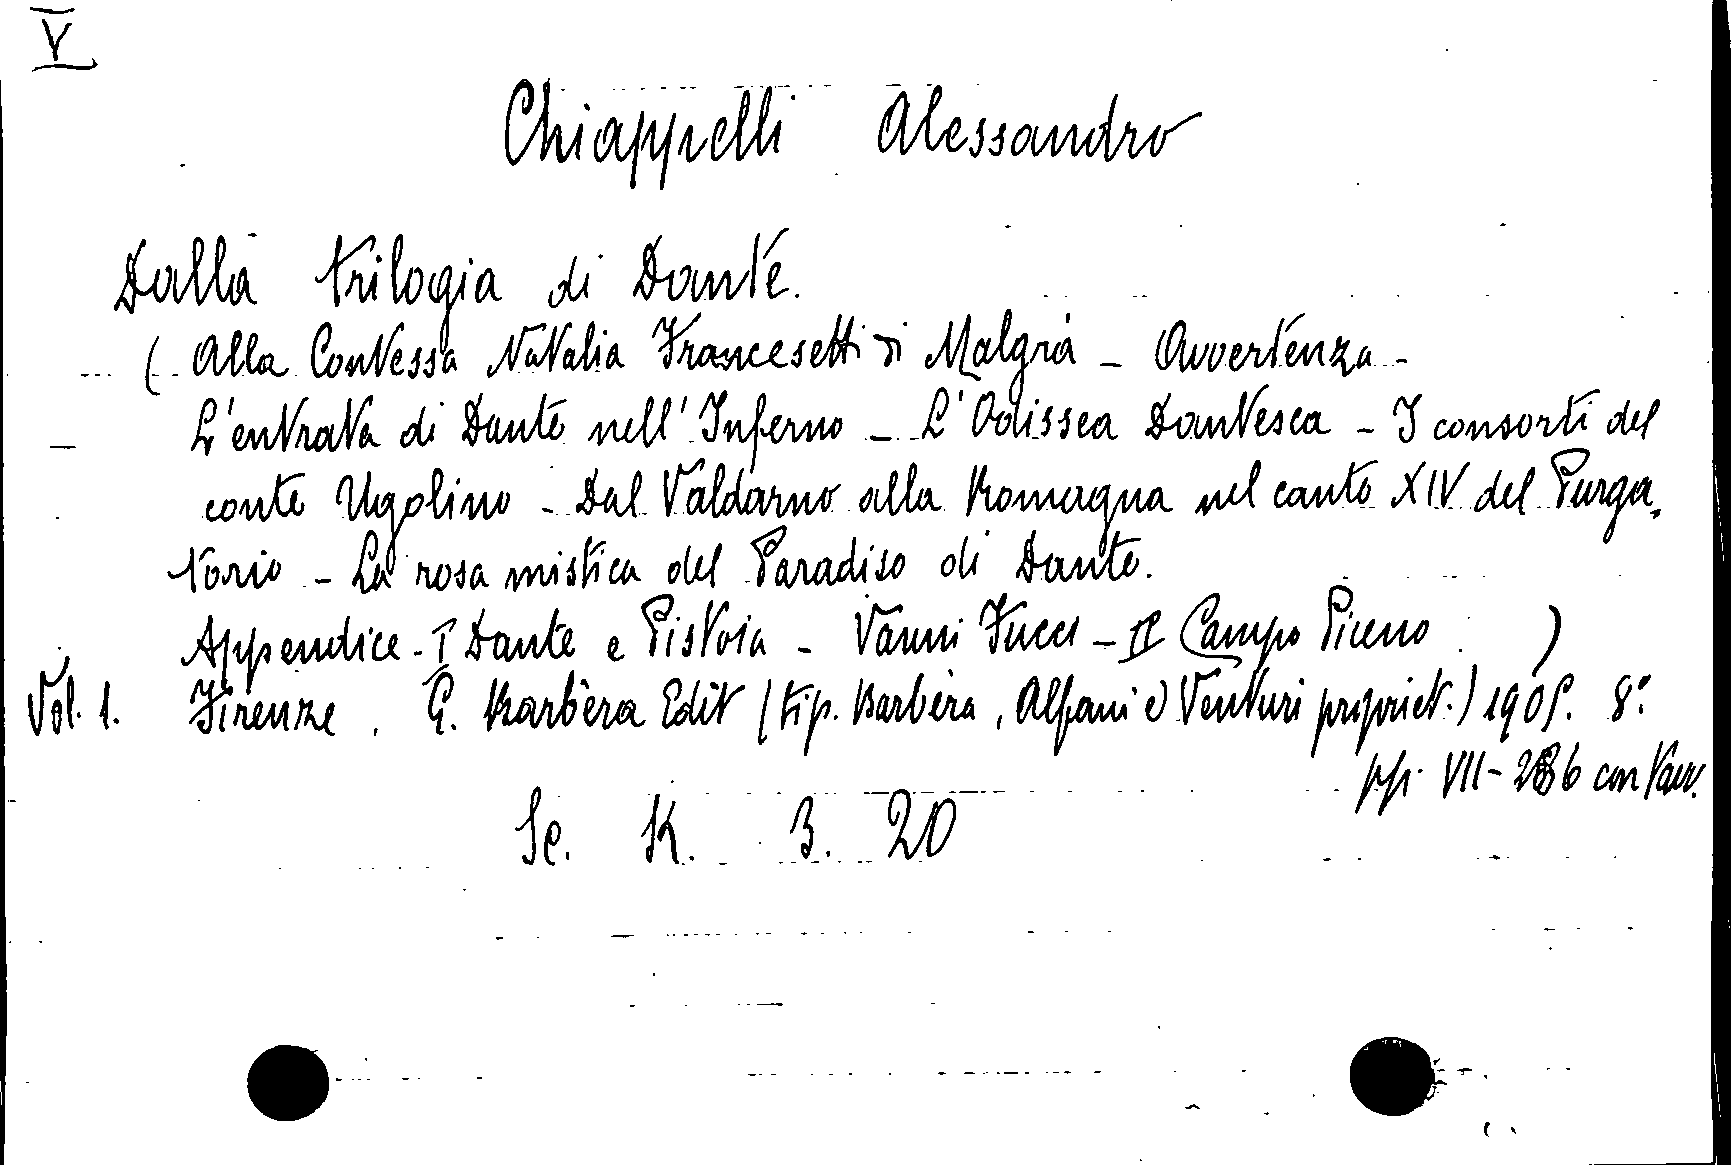 V
Chiappelli Alessandro
Dalla trilogia di Dante.
( Alla Contessa Natalia Francesetti di Malgrà - Avvertenza -
L'entrata di Dante nell'Inferno - L'Odissea Dantesca - I consorti del
conte Ugolino - Dal Valdarno alla Romagna nel canto XIV del Purga-
torio - La rosa mistica del Paradiso di Dante.
Appendice - I Dante e Pistoia - Vanni Fucci - II Campo Piceno )
Vol. 1. Firenze, G. Barbèra Edit (tip. Barbèra, Alfani e Venturi propriet.) 1905. 8°
pp. VII - 286 con tavv.
Sc. K. 3. 20